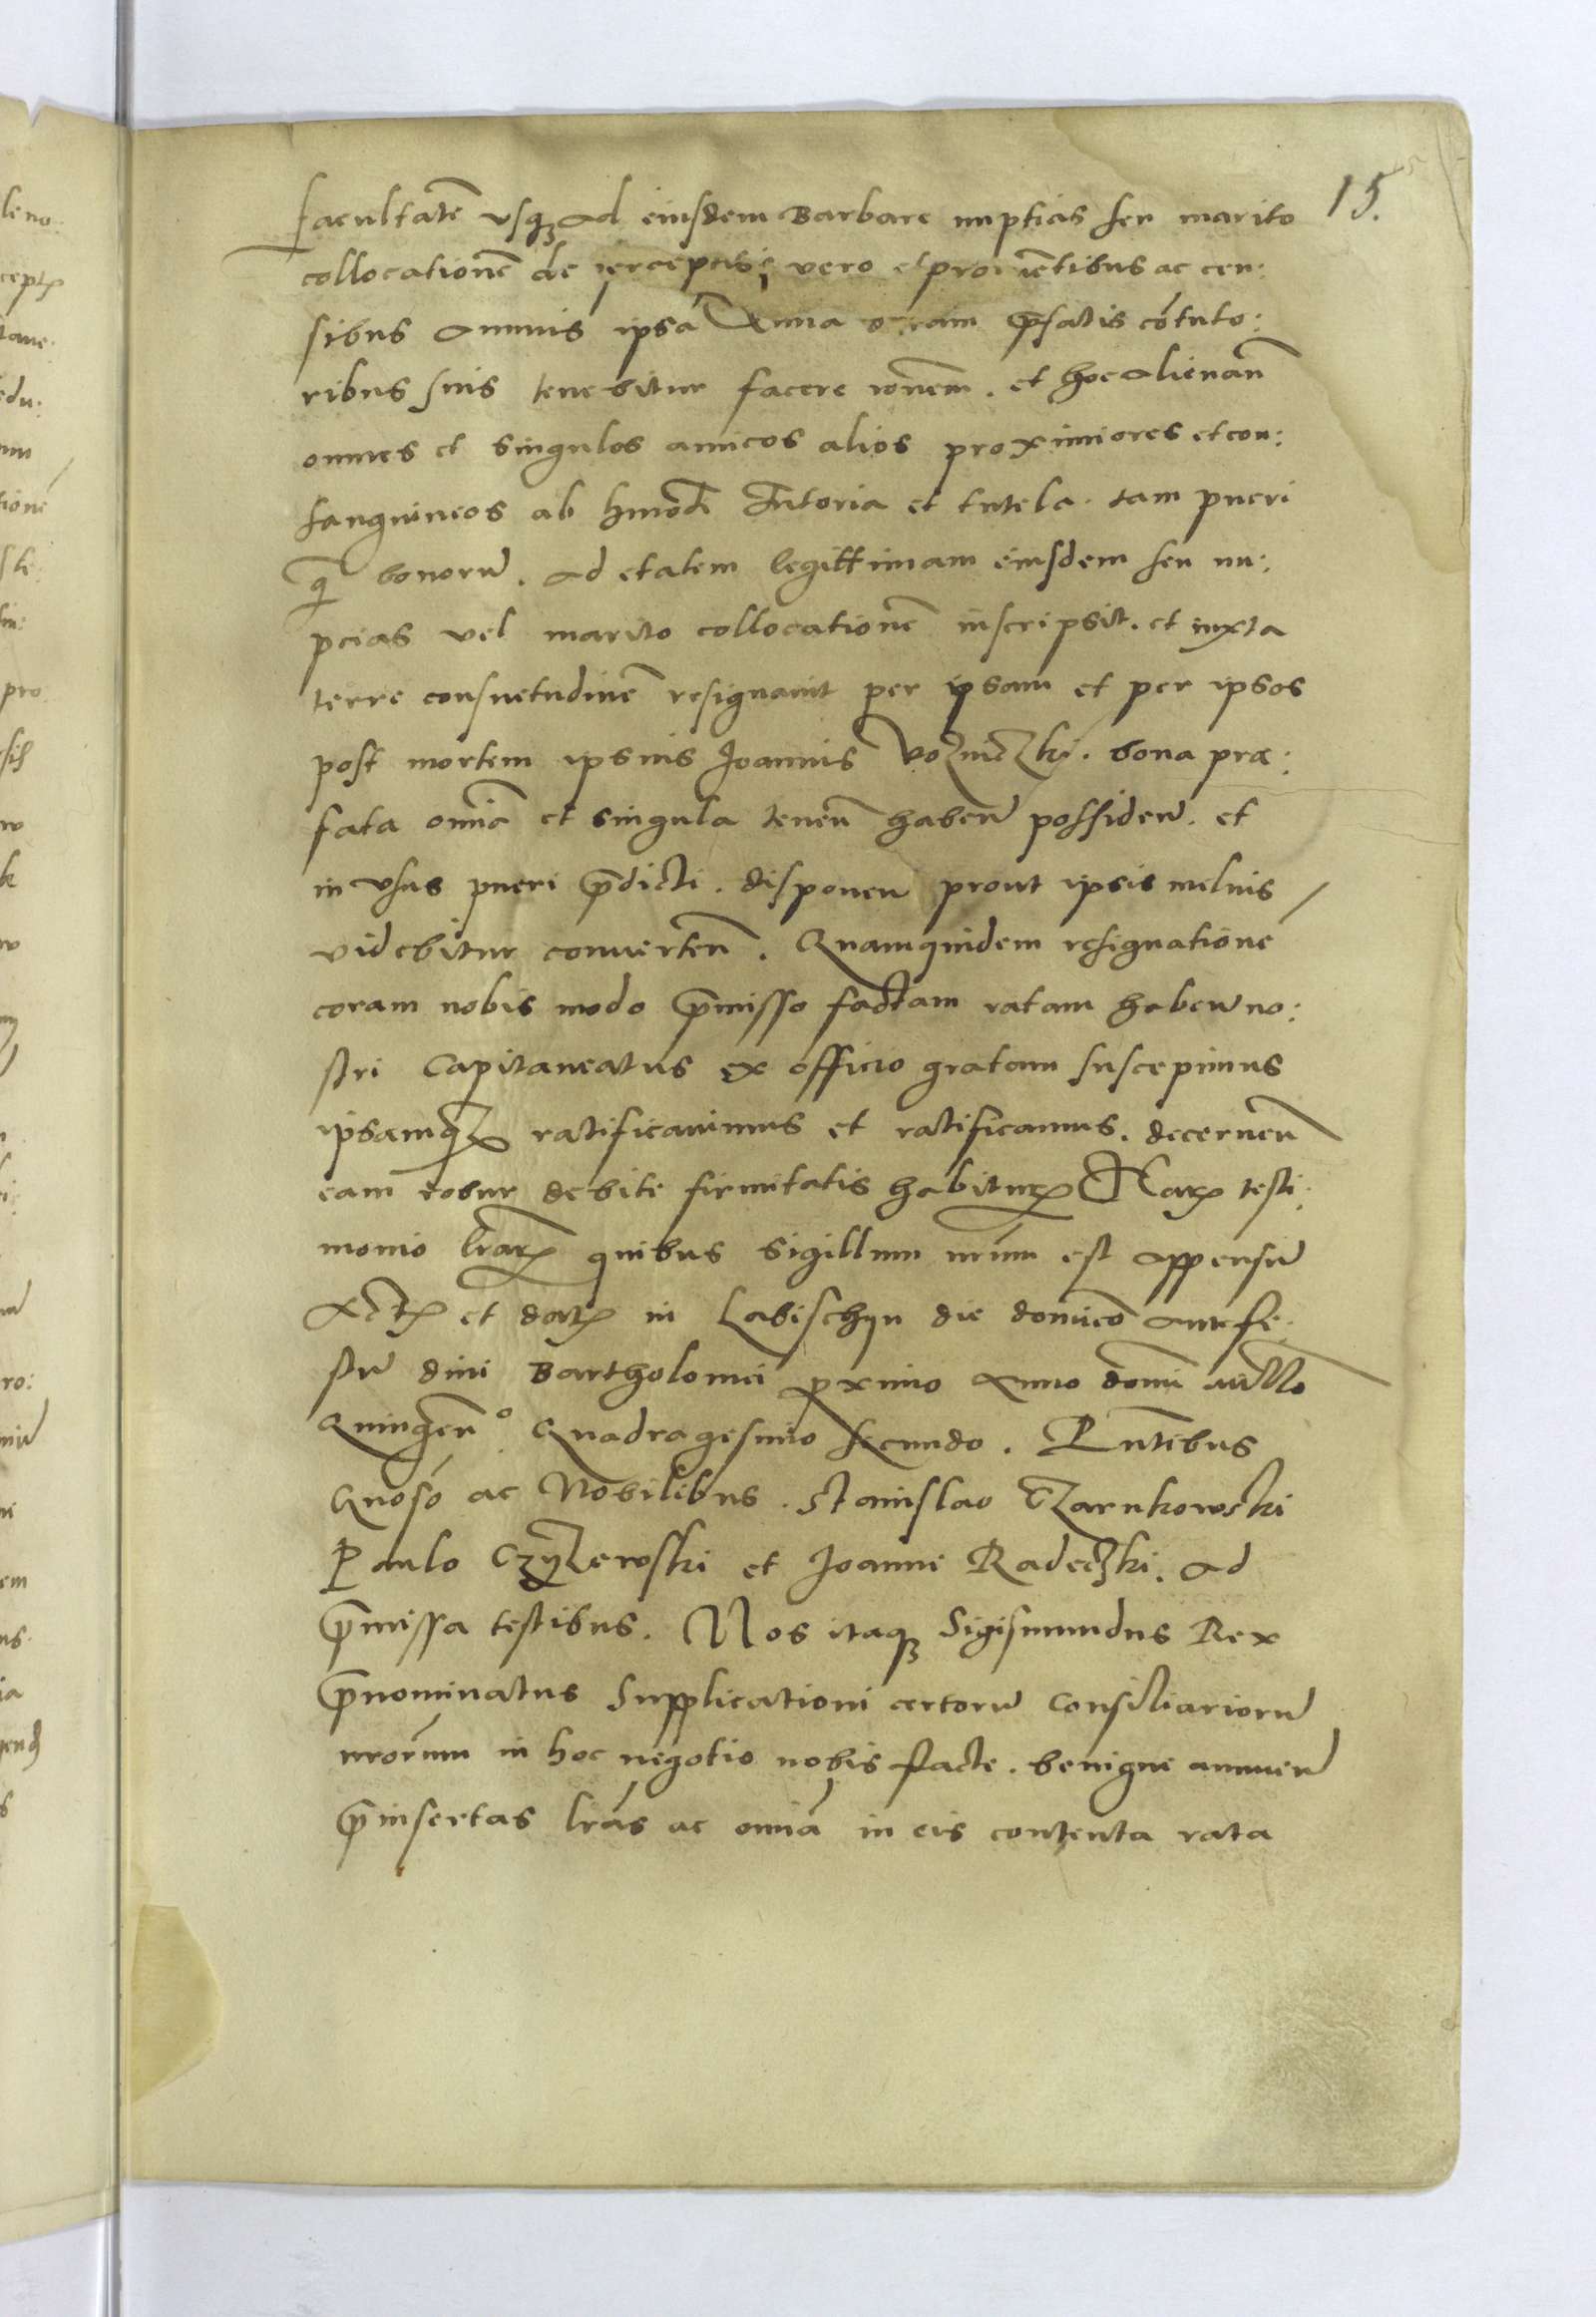 15.
facultatē vsqꝫ ad eiusdem Barbare nuptias seu marito
collocationē de perceptis vero et prouētibus ac cen:
sibus Annuis ipsa Anna coram p̄fatis cōtuto:
ribus suis tenebitur facere rōnem. et hoc alienan̄
omnes et singulos amicos alios proximiores et con:
sanguineos ab hmōdi Tutoria et tutela. tam pueri
q̄ bonorū. ad etatem legittimam eiusdem seu nu:
pcias vel marito collocationē inscripsit. et iuxta
terre consuetudinē resignauit per ipsam et per ipsos
post mortem ipsius Joannis bona præ:
fata om̄ia et singula tenen̄ haben̄ possiden̄. et
in vsus pueri p̄dicti. disponen̄ prout ipsis melius
videbitur conuerten̄. Quamquidem resignationē
coram nobis modo p̄misso factam ratam haben̄ no:
stri Capitaneatus ex officio gratam suscepimus
ipsamqꝫ ratificauimus et ratificamus. decernen̄
eam robur debite firmitatis habiturꝫ Harꝫ testi:
monio lrārꝫ quibus Sigillum nrūm est appensū
Actꝫ et datꝫ in Labischyn die domīco ante fe:
stū diui Bartholomei proximo Anno domī mill̄o
Quingen̄º Quadragesimo secundo. Pn̄tibus
Gnōsō ac Nobilibus. Stanislao Czarnkowski
Paulo Czyzewski et Joanne Radeczki. ad
p̄missa testibus. Nos itaqꝫ Sigismundus Rex
p̄nominatus Supplicationi certorū Consiliariorū
nrōrum in hoc negotio nobis facte. benigne annuen̄
p̄insertas lrās ac om̄ia in eis contenta rata